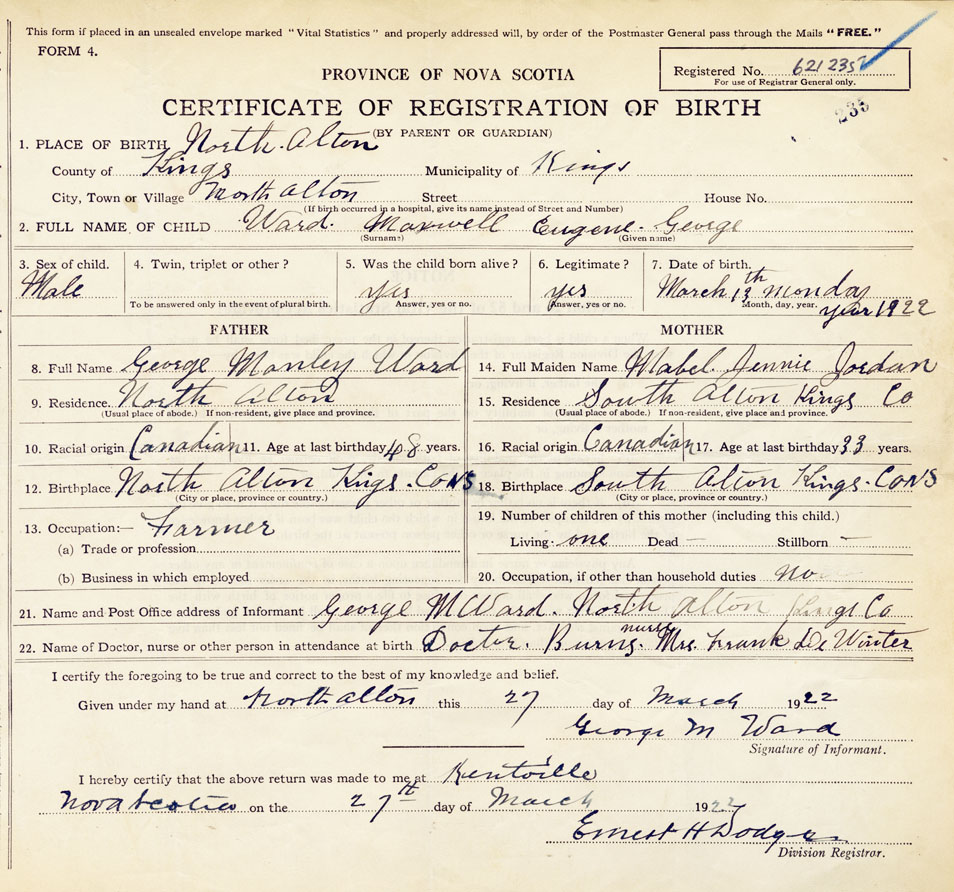 This form if placed in an unsealed envelope marked "Vital Statistics" and properly addressed will, by order of the Postmaster General pass through the Mails "FREE."
FORM 4.
PROVINCE OF NOVA SCOTIA
Registered No. 621235
For use of Registrar General only.
CERTIFICATE OF REGISTRATION OF BIRTH
235
(BY PARENT OR GUARDIAN)
1. PLACE OF BIRTH North Alton
County of Kings Municipality of Kings
City, Town or Village North Alton Street House No.
(If birth occurred in a hospital, give its name instead of Street and Number)
2. FULL NAME OF CHILD Ward. Maxwell Eugene. George
(Surname) (Given name)
3. Sex of child. 4. Twin, triplet or other? 5. Was the child born alive? 6. Legitimate? 7. Date of birth.
Male yes yes March 13th monday
To be answered only in the event of plural birth. Answer, yes or no. Answer, yes or no. Month, day, year.
year 1922
FATHER MOTHER
8. Full Name George Manley Ward 14. Full Maiden Name Mabel. Jennie Jordan
9. Residence. North Alton 15. Residence South Alton Kings Co
(Usual place of abode.) If non-resident, give place and province. (Usual place of abode.) If non-resident, give place and province.
10. Racial origin Canadian 11. Age at last birthday 48 years. 16. Racial origin Canadian 17. Age at last birthday 33 years.
12. Birthplace North Alton Kigs. Co NS 18. Birthplace South Alton Kings. Co NS
(City or place, province or country.) (City or place, province or country.)
13. Occupation:— Farmer 19. Number of children of this mother (including this child.)
(a) Trade or profession Living one Dead — Stillborn —
(b) Business in which employed 20. Occupation, if other than household duties no
21. Name and Post Office address of Informant George M Ward. North Alton Kings Co
22. Name of Doctor, nurse or other person in attendance at birth Doctor. Burns. nurse Mrs. Frank De Winter
I certify the foregoing to be true and correct to the best of my knowledge and belief.
Given under my hand at North Alton this 27 day of March 1922
George M Ward
Signature of Informant.
I hereby certify that the above return was made to me at Kentville
Nova Scotia on the 27th day of March 1922
Ernest H Dodge
Division Registrar.